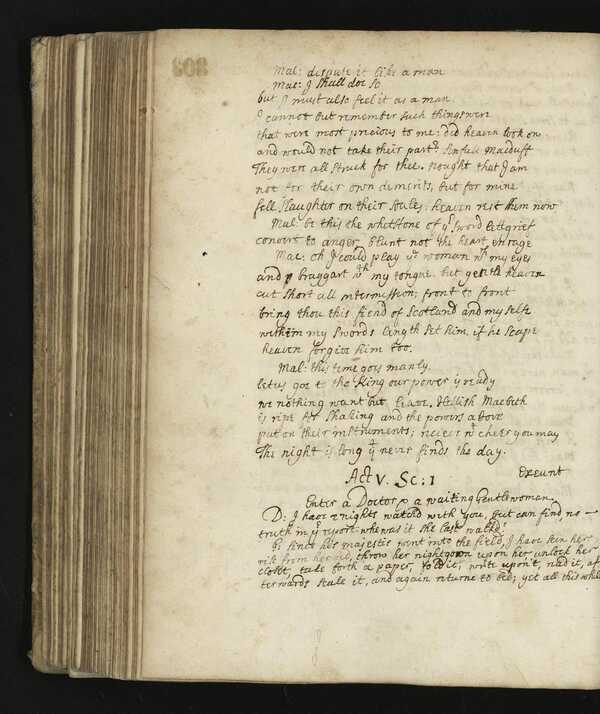 Mal: dispute it like a man
Mac: I shall doe so
but I must also feel it as a man
I cannot but remember such things were
that were most precious to me: did heaven look on
and would not take their part? Sinfull Macduff
They were all struck for thee. Nought that I am
not for their own demerits, but for mine
fell slaughter on their soules: heaven rest them now
Mal: be this the whetstone of yr sword lett grief
convert to anger, blunt not the heart, enrage
Mac: oh I could play ye woman wth my eyes
and braggart wth my tongue. but gentle heaven
cut short all intermission; front to front
bring thou this fiend of Scotland and my selfe
within my swords length set him, if he scape
heaven forgive him too.
Mal: this time goes manly.
let us goe to the King our power is ready
we nothing want but leave. Hellish Macbeth
is ripe for shaking and the powers above
put on their instruments; receive wt cheer you may
The night is long yt never finds the day.
Exeunt
Act V. Sc: 1
Enter a Doctor & a waiting Gentlewoman.
D: I have 2 nights watchd with you, but can find no
truth in yr report. when was it she last walkd?
G: since his majestie went into the field, I have seen her
rise from her bed, throw her nightgown upon her, unlock her
closet, take forth a paper, fold it, write upon't, read it, af
terwards seale it, and again returne to bed; yet all this while